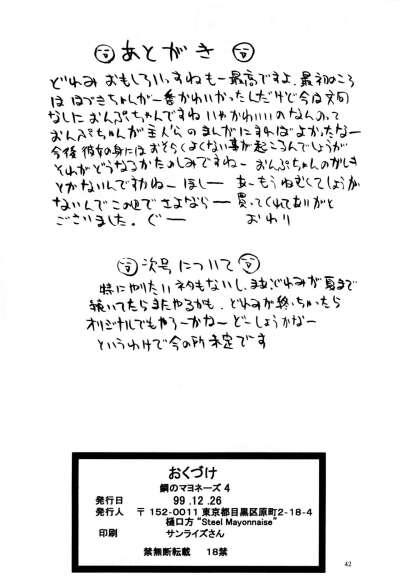 あとがき
どれみおもしろいっすねもー最高ですよ。最初のころ
ははづきちゃんが一番かわいかったんだけど今は文句
なしにおんぷちゃんですねいやかわいいのなんのって
おんぷちゃんが主人公のまんがにすればよかったなー
今後彼女の身にはおそらくよくない事が起こるんでしょうが
それがどうなるかたのしみですねー おんぷちゃんのがしき
とかないんですかねー ほしー あーもうねむくてしょうが
ないんでこの辺でさよならー 買ってくれてありがと
ございました。ぐー おわり
次号について
特にやりたいネタもないし、まだどれみが夏まで
続いてたらまたやるかも、どれみが終っちゃったら
オリジナルでもやろーかねー どーしょうかなー
というわけで今の所未定です
おくづけ
鋼のマヨネーズ 4
発行日 99.12.26
発行人 〒152-0011 東京都目黒区原町2-18-4
樋口方 "Steel Mayonnaise"
印刷 サンライズさん
禁無断転載 18禁
42